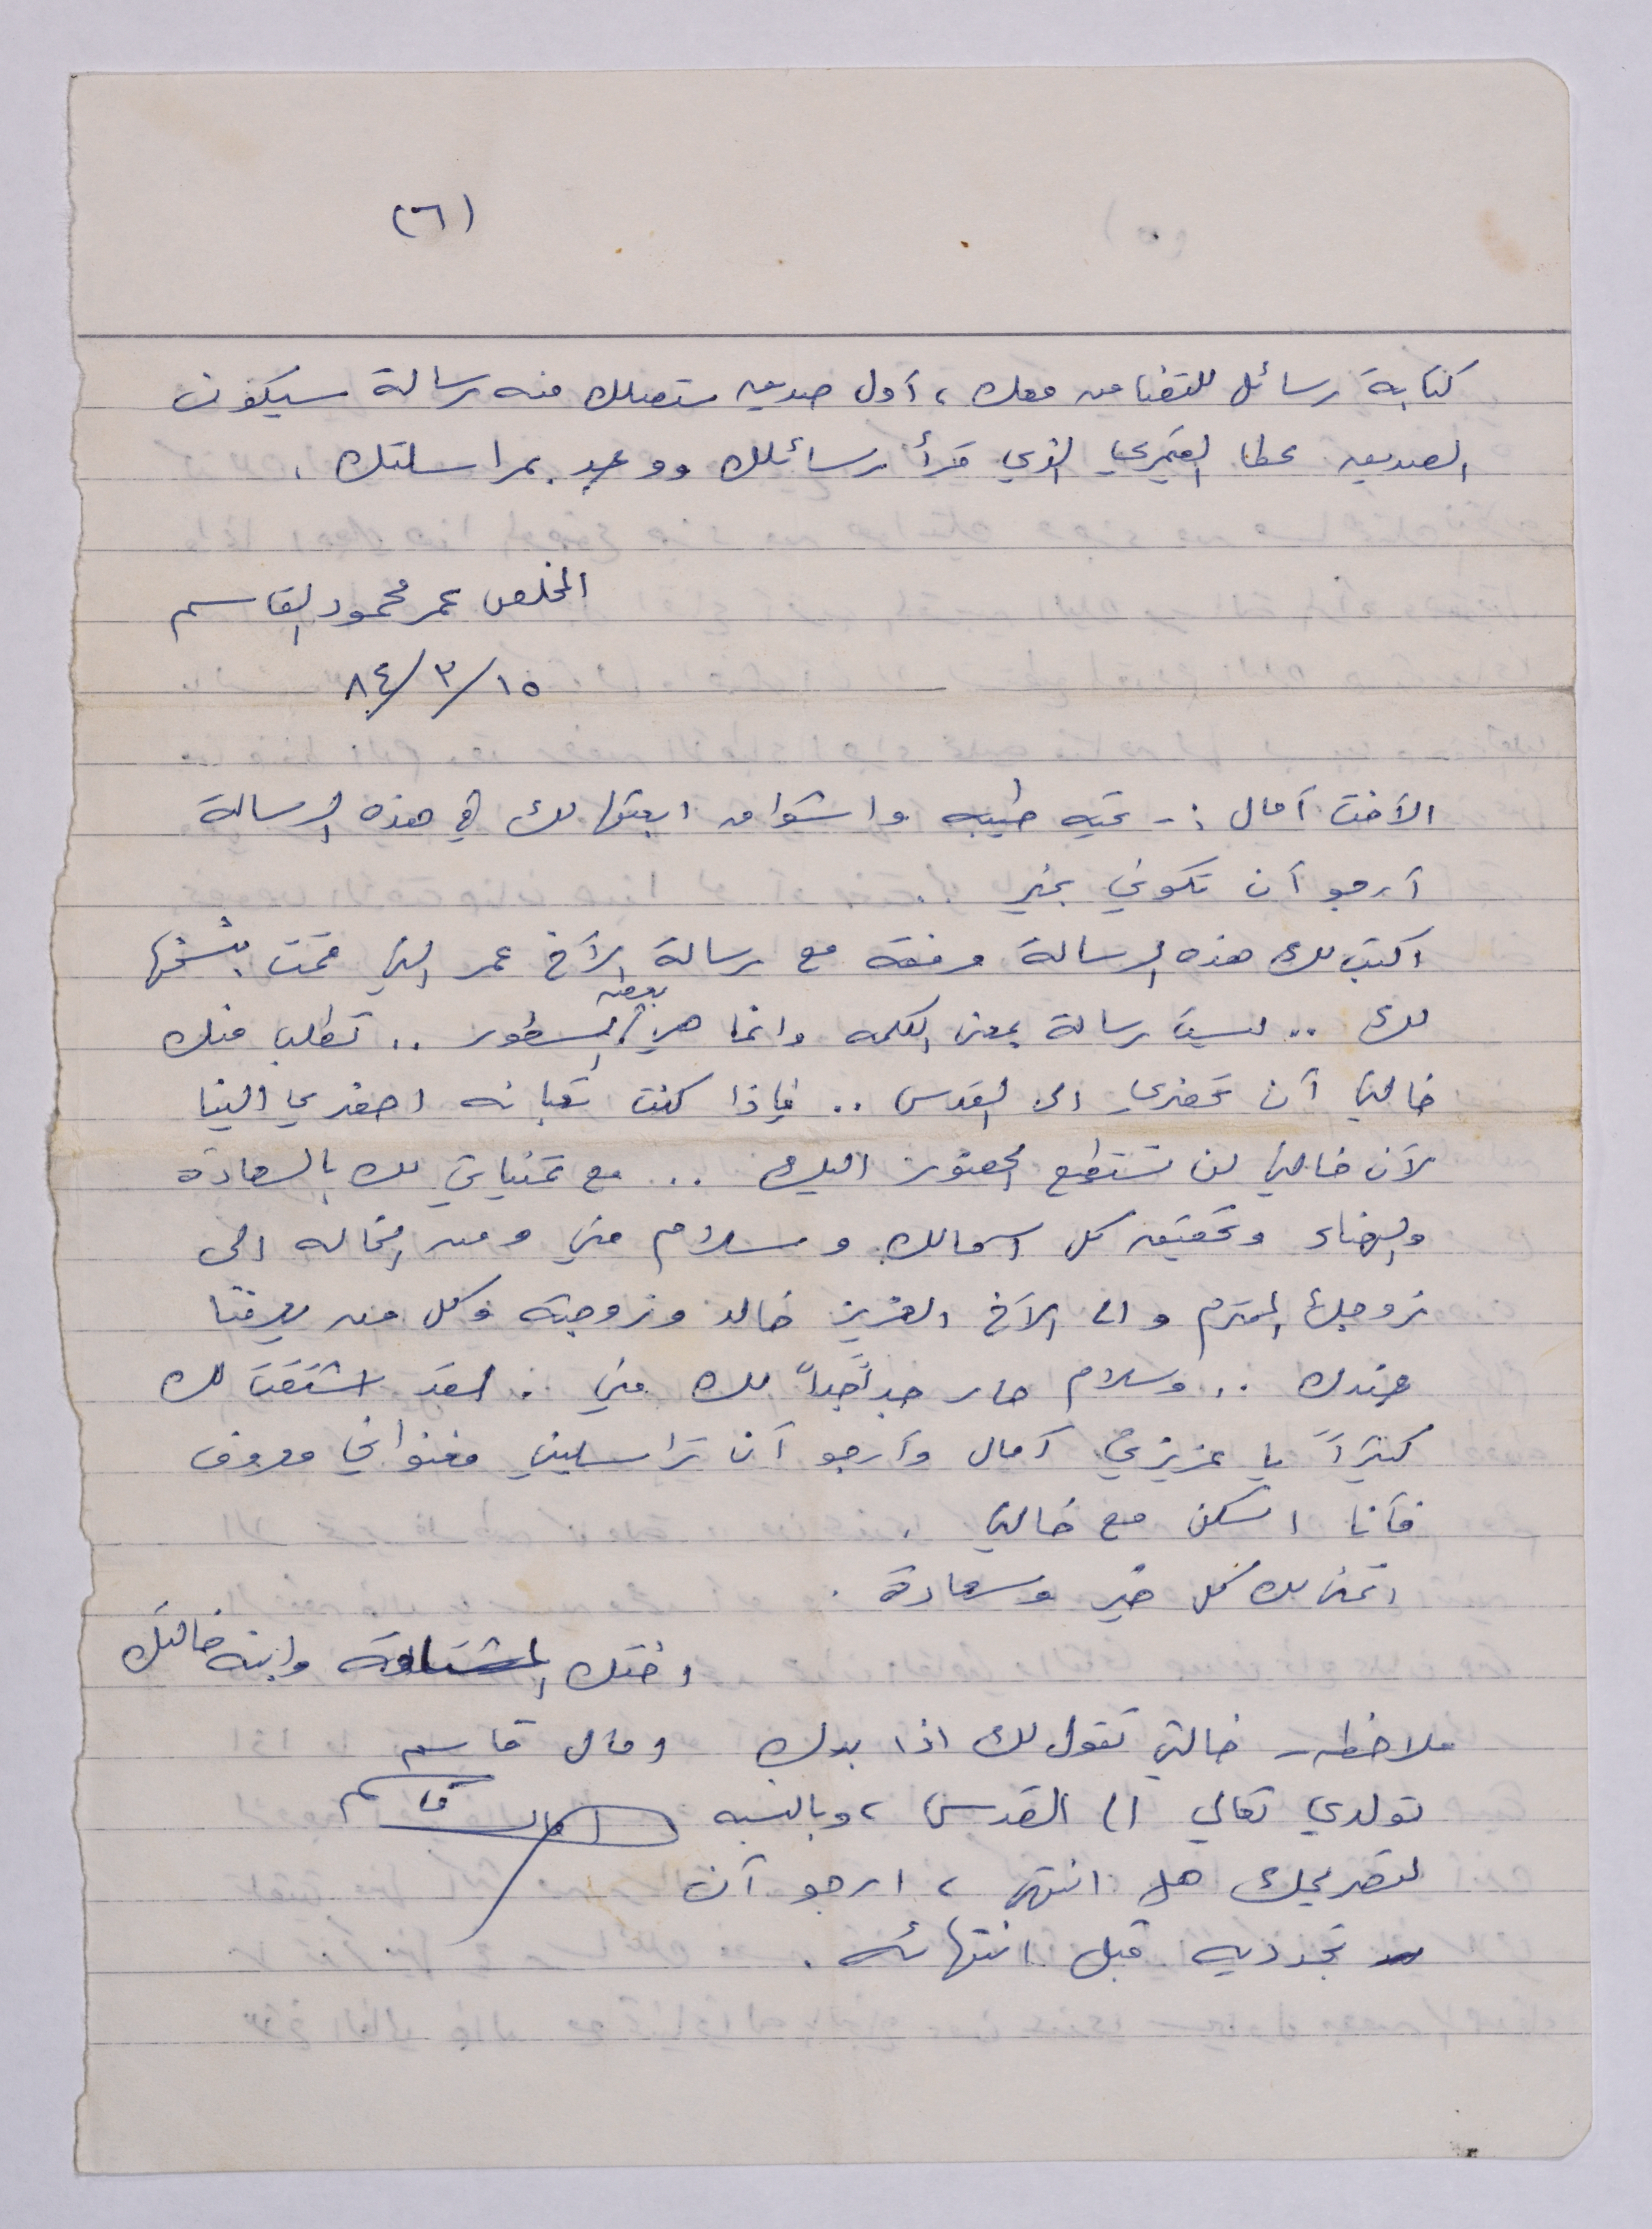 (٦)
كتابة رسائل للتضامن معك، أول صديق ستصلك منه رسالة سيكون
الصديق عطا القيمري الذي قرأ رسائلك ووعد بمراسلتك.
المخلص عمر محمود القاسم
١٥/٣/٨٤
الأخت آمال :- تحيه طيبه واشواق ابعثها لك في هذه الرسالة
أرجو أن تكوني بخير
اكتب لك هذه الرسالة مرفقه مع رسالة الأخ عمر التي قمت بنسخها
لك .. ليست رسالة بمعنى الكلمه وانما هي بعض السطور .. تطلب منك
خالتي أن تحضري الى القدس .. فإذا كنت تعبانه احضري الينا
لأن خالتي لن تستطيع الحضور اليك .. مع تمنياتي لك بالسعادة
والهناء وتحقيق كل امالك وسلام مني ومن الخاله الى
زوجك المحترم والى الأخ العزيز خالد وزوجته وكل من يعرفنا
عندك .. وسلام حار جداً جداً لك مني . لقد اشتقت لك
كثيراً يا عزيزتي آمال وأرجو أن تراسليني فعنواني معروف
فأنا اسكن مع خالتي .
اتمنى لك كل خير وسعادة .
اختك المشتاقة وابنة خالتك
ملاحظه - خالتي تقول لك اذا بدك
تولدي تعالي الى القدس، وبالنسبه
لتصريحك هل انتهى، ارجو أن
تجدديه قبل انتهائه .
قاسم